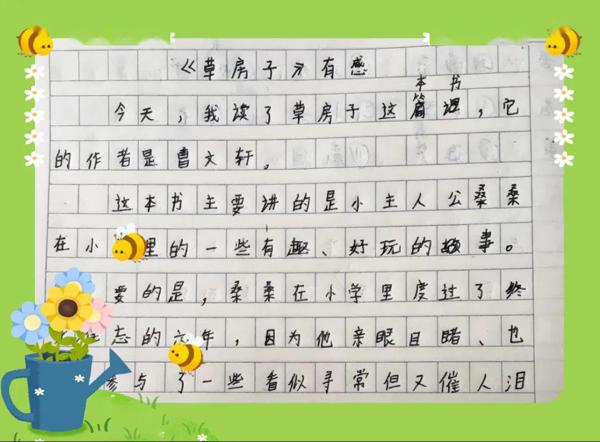 《草房子》有感
今天，我读了草房子这本书，它
的作者是曹文轩。
这本书主要讲的是小主人公桑桑
在小里的一些有趣、好玩的故事。
要的是，桑桑在小学里度过了终
忘的六年，因为他亲眼目睹、也
参与了一些看似寻常但又催人泪